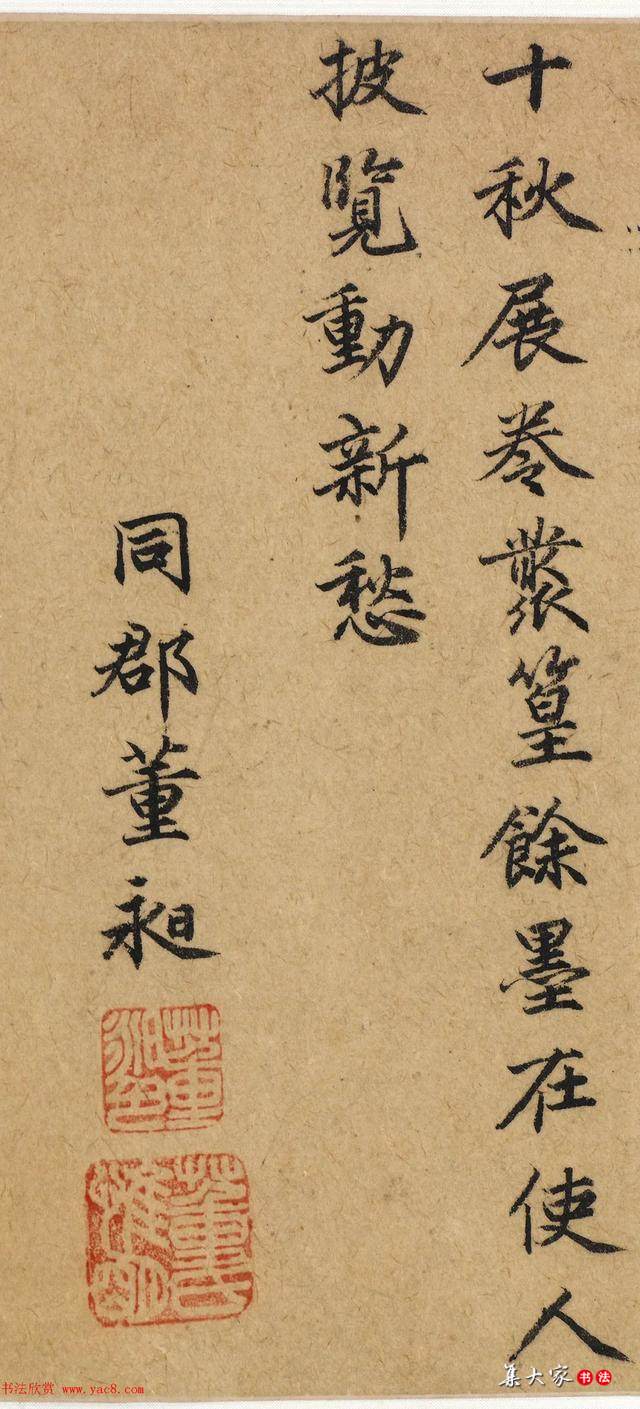 十秋展卷叢篁餘墨在使人
披覽動新愁
同郡董昶
书法欣赏 www.yac8.com
集大家 书法